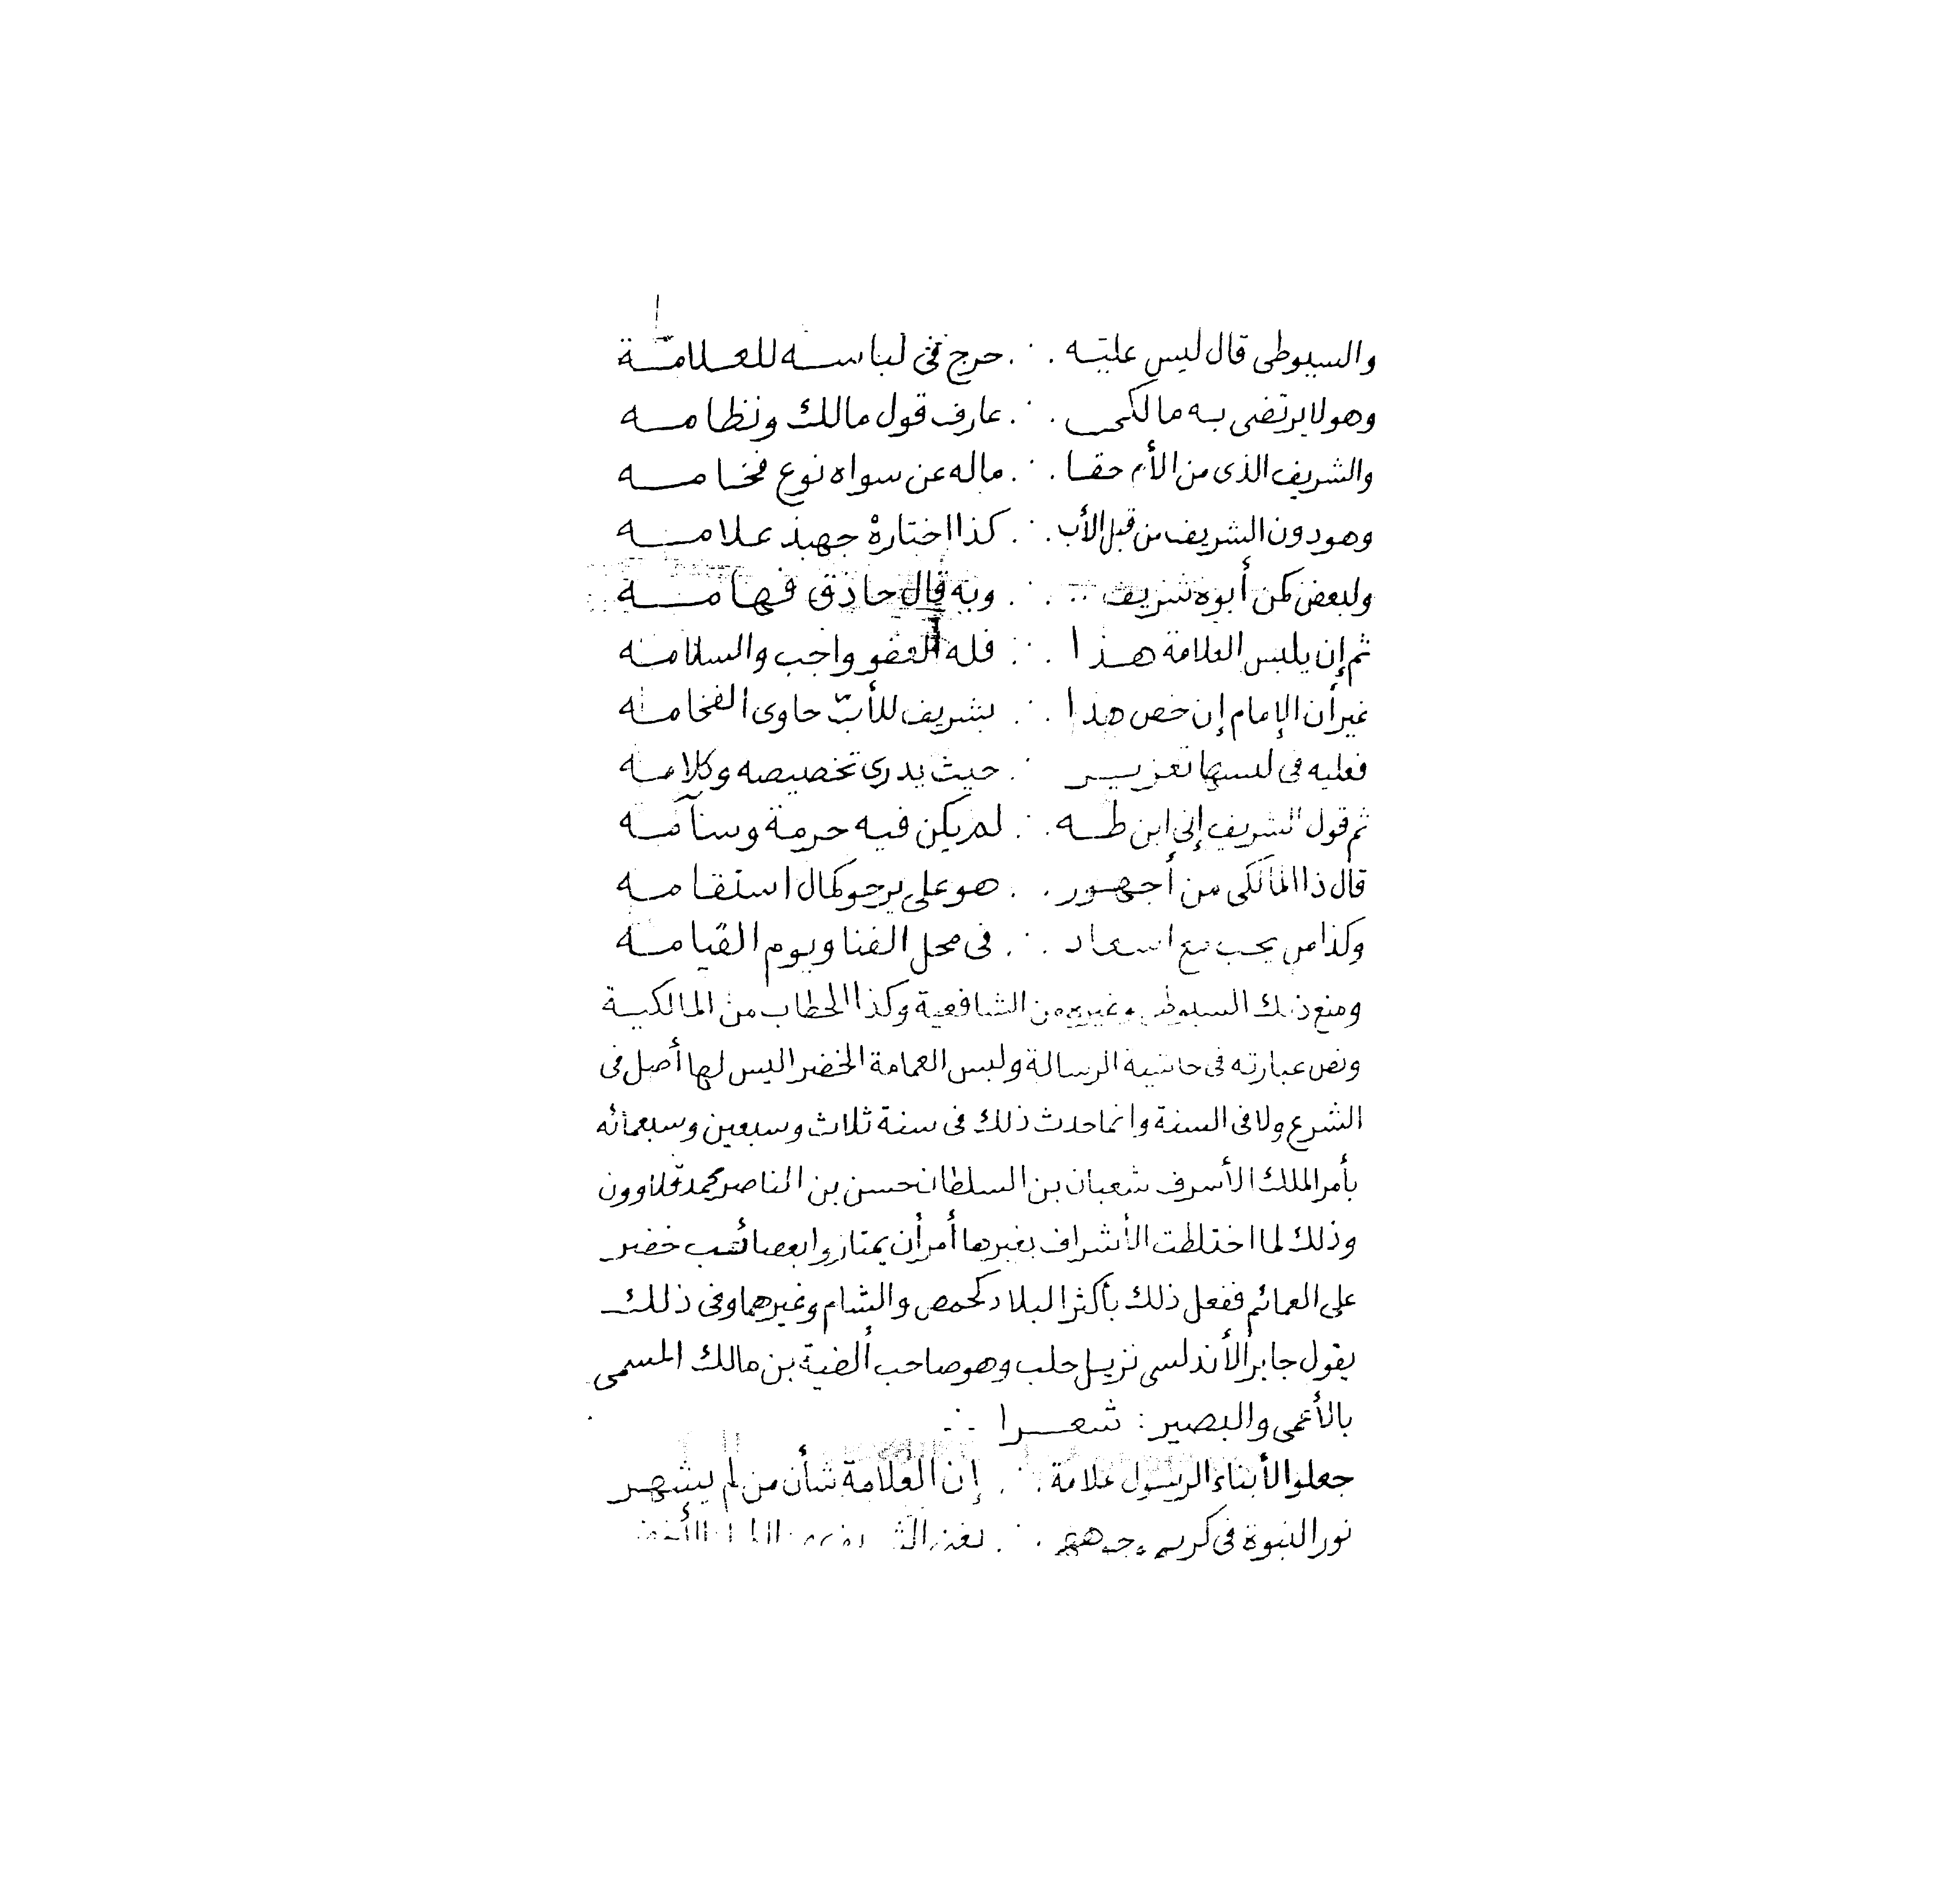 والسيوطى قال ليس عليه ∴ حرج فى لباسه للعلامة
وهو لا يرتضى به مالكى ∴ عارف قول مالك ونظامه
والشريف الذى من الأم حقا ∴ ماله عن سواه نوع فخامه
وهو دون الشريف من قبل الأب ∴ كذا اختاره جهبذ علامه
ولبعض كمن أبوه شريف ∴ وبه قال حاذق فهامه
ثم إن يلبس العلامة هذا ∴ فله العفو واجب والسلامه
غير أن الإمام إن خص هذا ∴ بشريف للأب حاوى الفخامه
فعليه فى لبسها تعزير ∴ حيث يدرى تخصيصه وكلامه
ثم قول الشريف إنى ابن طه ∴ لم يكن فيه حرمة وسآمه
قال ذا المالكى من أجهور ∴ هو على يرجو كمال استقامه
وكذا من يحب مع اسعاد ∴ فى محل الفنا ويوم القيامه
ومنع ذلك السيوطى وغيره من الشافعية وكذا الحطاب من المالكية
ونص عبارته فى حاشية الرسالة ولبس العمامة الخضرا ليس لها أصل فى
الشرع ولا فى السنة وانما حدث ذلك فى سنة ثلاث وسبعين وسبعمائه
بأمر الملك الأسرف شعبان بن السلطان حسن بن الناصر محمد قلاوون
وذلك لما اختلطت الأشراف بغيرها أمر أن يمتازوا بعصائب خضر
على العمائم ففعل ذلك بأكثر البلاد كحمص والشام وغيرهما وفى ذلك
يقول جابر الأندلسى نزيل حلب وهو صاحب ألفية بن مالك المسمى
بالأعمى والبصير: شعرا ∴
جعلوا لأبناء الرسول علامة ∴ إن العلامة شأن من لم يشهر
نور النبوة فى كريم وجوههم ∴ يغنى الشريف عن الطراز الأخضر